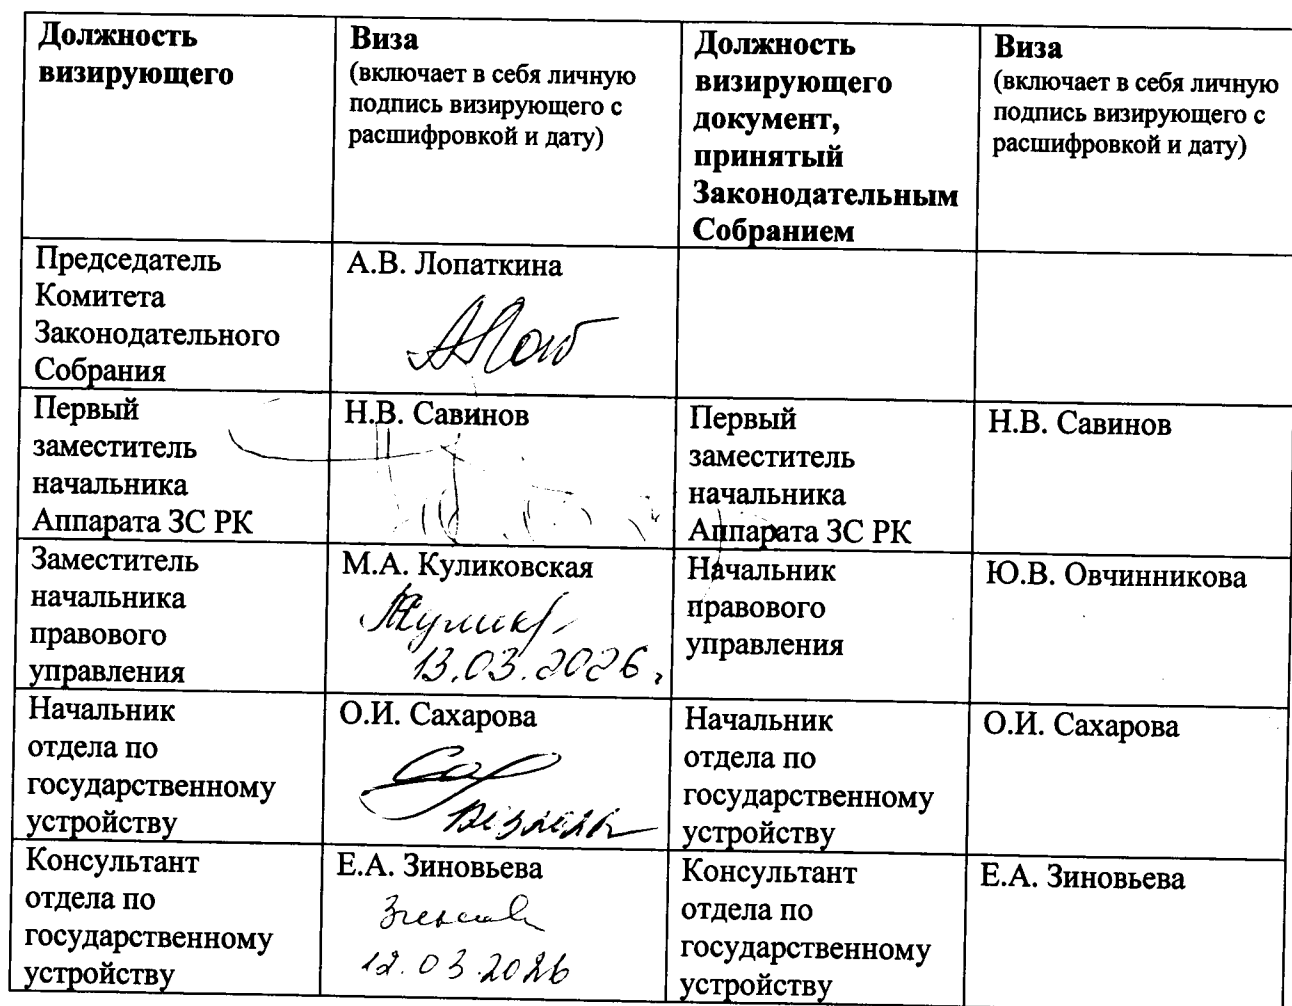 Должность
визирующего
Виза
(включает в себя личную
подпись визирующего с
расшифровкой и дату)
Должность
визирующего
документ,
принятый
Законодательным
Собранием
Виза
(включает в себя личную
подпись визирующего с
расшифровкой и дату)
Председатель
Комитета
Законодательного
Собрания
А.В. Лопаткина
Первый
заместитель
начальника
Аппарата ЗС РК
Н.В. Савинов
Первый
заместитель
начальника
Аппарата ЗС РК
Н.В. Савинов
Заместитель
начальника
правового
управления
М.А. Куликовская
13.03.2026г
Начальник
правового
управления
Ю.В. Овчинникова
Начальник
отдела по
государственному
устройству
О.И. Сахарова
Начальник
отдела по
государственному
устройству
О.И. Сахарова
Консультант
отдела по
государственному
устройству
Е.А. Зиновьева
12.03.2026
Консультант
отдела по
государственному
устройству
Е.А. Зиновьева